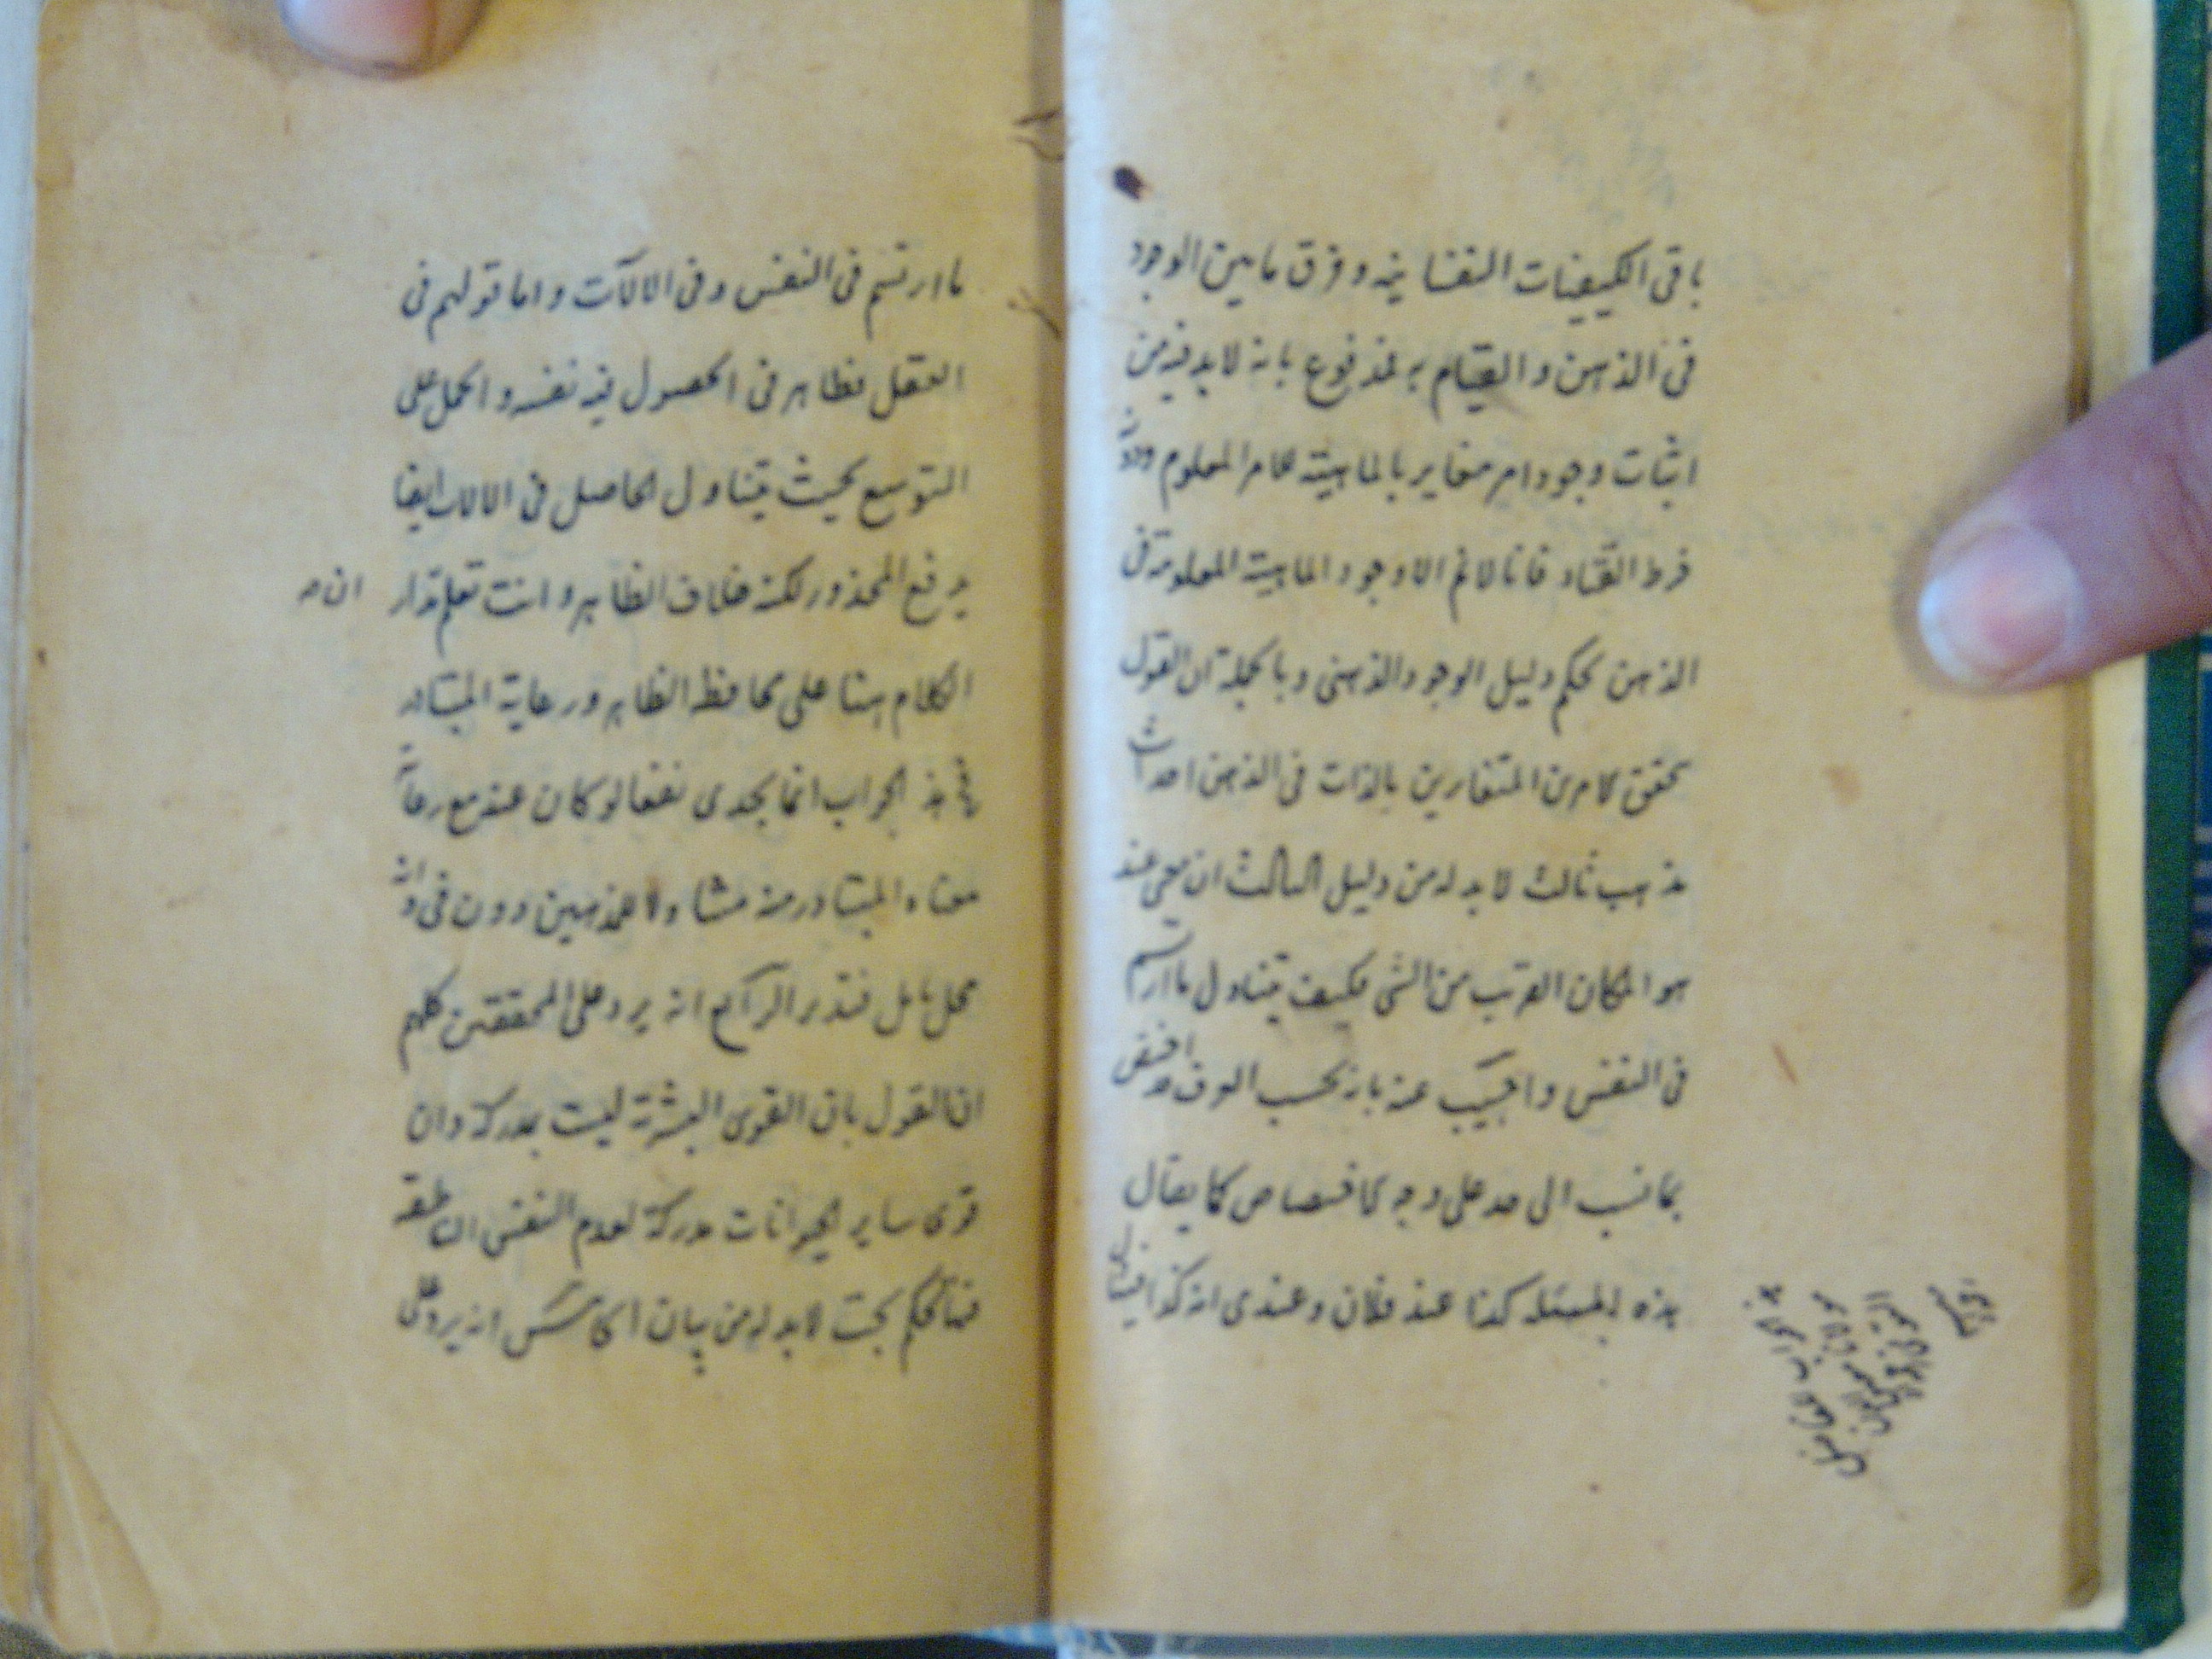 باقى الكيفيات النفسانية وفرق ما بين الوجود
فى الذهن والقيام به فمدفوع بانه لابد فيه من
اثبات وجود امر مغاير بالماهية للامر المعلوم ودونه
خرط القتاد فانا لانم الا وجود الماهية المعلومة فى
الذهن بحكم دليل الوجود الذهنى وبالجملة ان القول
بتحقق الامرين المتغايرين بالذات فى الذهن احداث
مذهب ثالث لابد له من دليل الثالث ان معنى عند
هو المكان القريب من الشى فكيف يتناول ما ارتسم
فى النفس واجيب عنه بانه بحسب العرف
بما نسب الى مدعلى وجه الاختصاص كما يقال
هذه المسئلة كذا عند فلان وعندى انه كذا
ما ارتسم فى النفس وفى الالآت واما قولهم فى
العقل فظاهر فى الحصول فيه نفسه والحمل على
التوسع بحيث يتناول الحاصل فى الالات ايضا
يدفع المحذور لكنه خلاف الظاهر وانت تعلم مدار
ان
الكلام هنا على محافظ الظاهر ورعاية المتبادر
هذ الجواب انما يجدى نفعا لو كان عند مع رعاية
معناه المتبادر منه للمذهبين دون فى وانه
محل تامل فتدبر الرابع انه يرد على المحققين كلهم
ان القول بان القوى البشرية ليست بمدركة وان
قوى ساير الحيوانات مدركة لعدم النفس الناطقة
فيها تحكم بحت لابد له من بيان الخامس انه يرد على